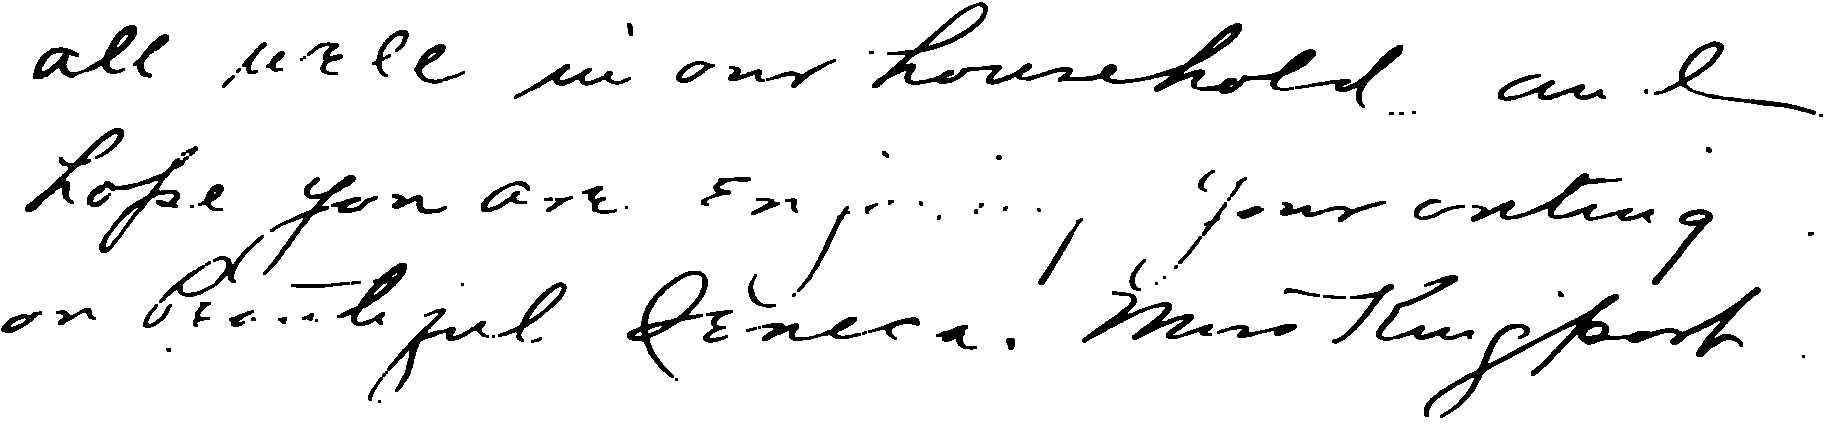 all well in our household and
hope you are enjoying your outing
on beautiful Seneca. Miss Kingport